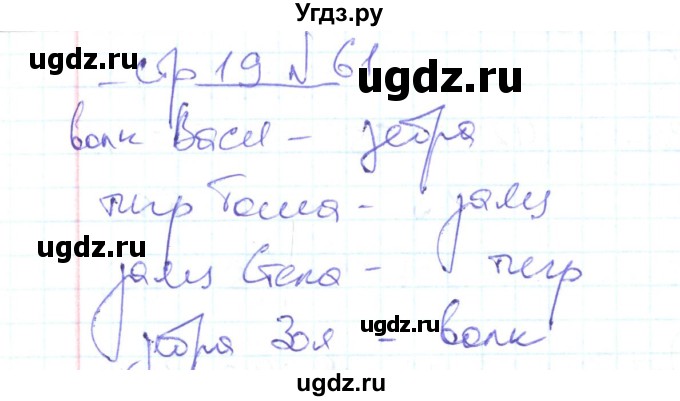 Угдз.ру
стр 19 № 61
волк Вася – зебра
тигр Гоша – заяц
заяц Степа – тигр
зебра Зоя – волк
ugdz.ru
ugdz.ru
ugdz.ru
ugdz.ru
ugdz.ru